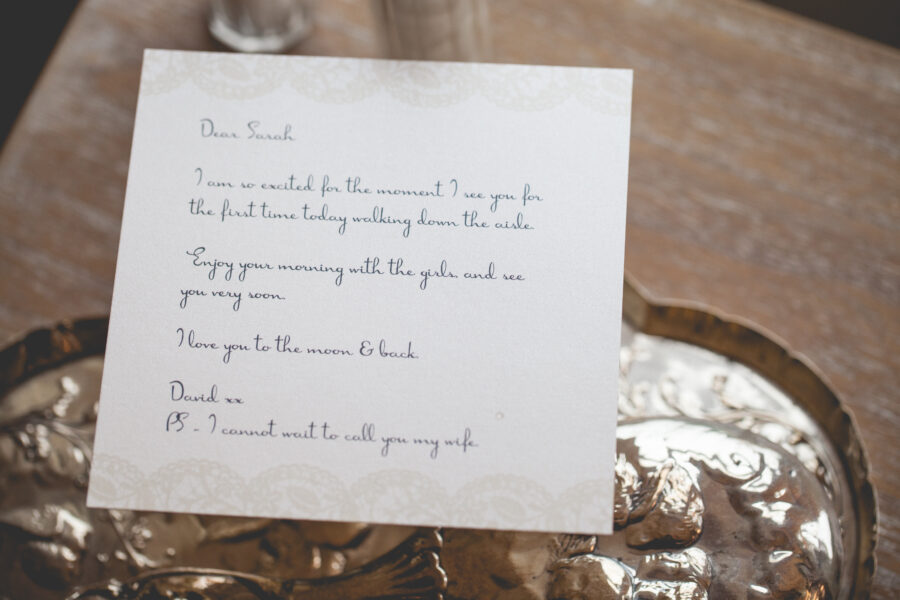 Dear Sarah
I am so excited for the moment I see you for
the first time today walking down the aisle.
Enjoy your morning with the girls, and see
you very soon.
I love you to the moon & back.
David xx
PS - I cannot wait to call you my wife.